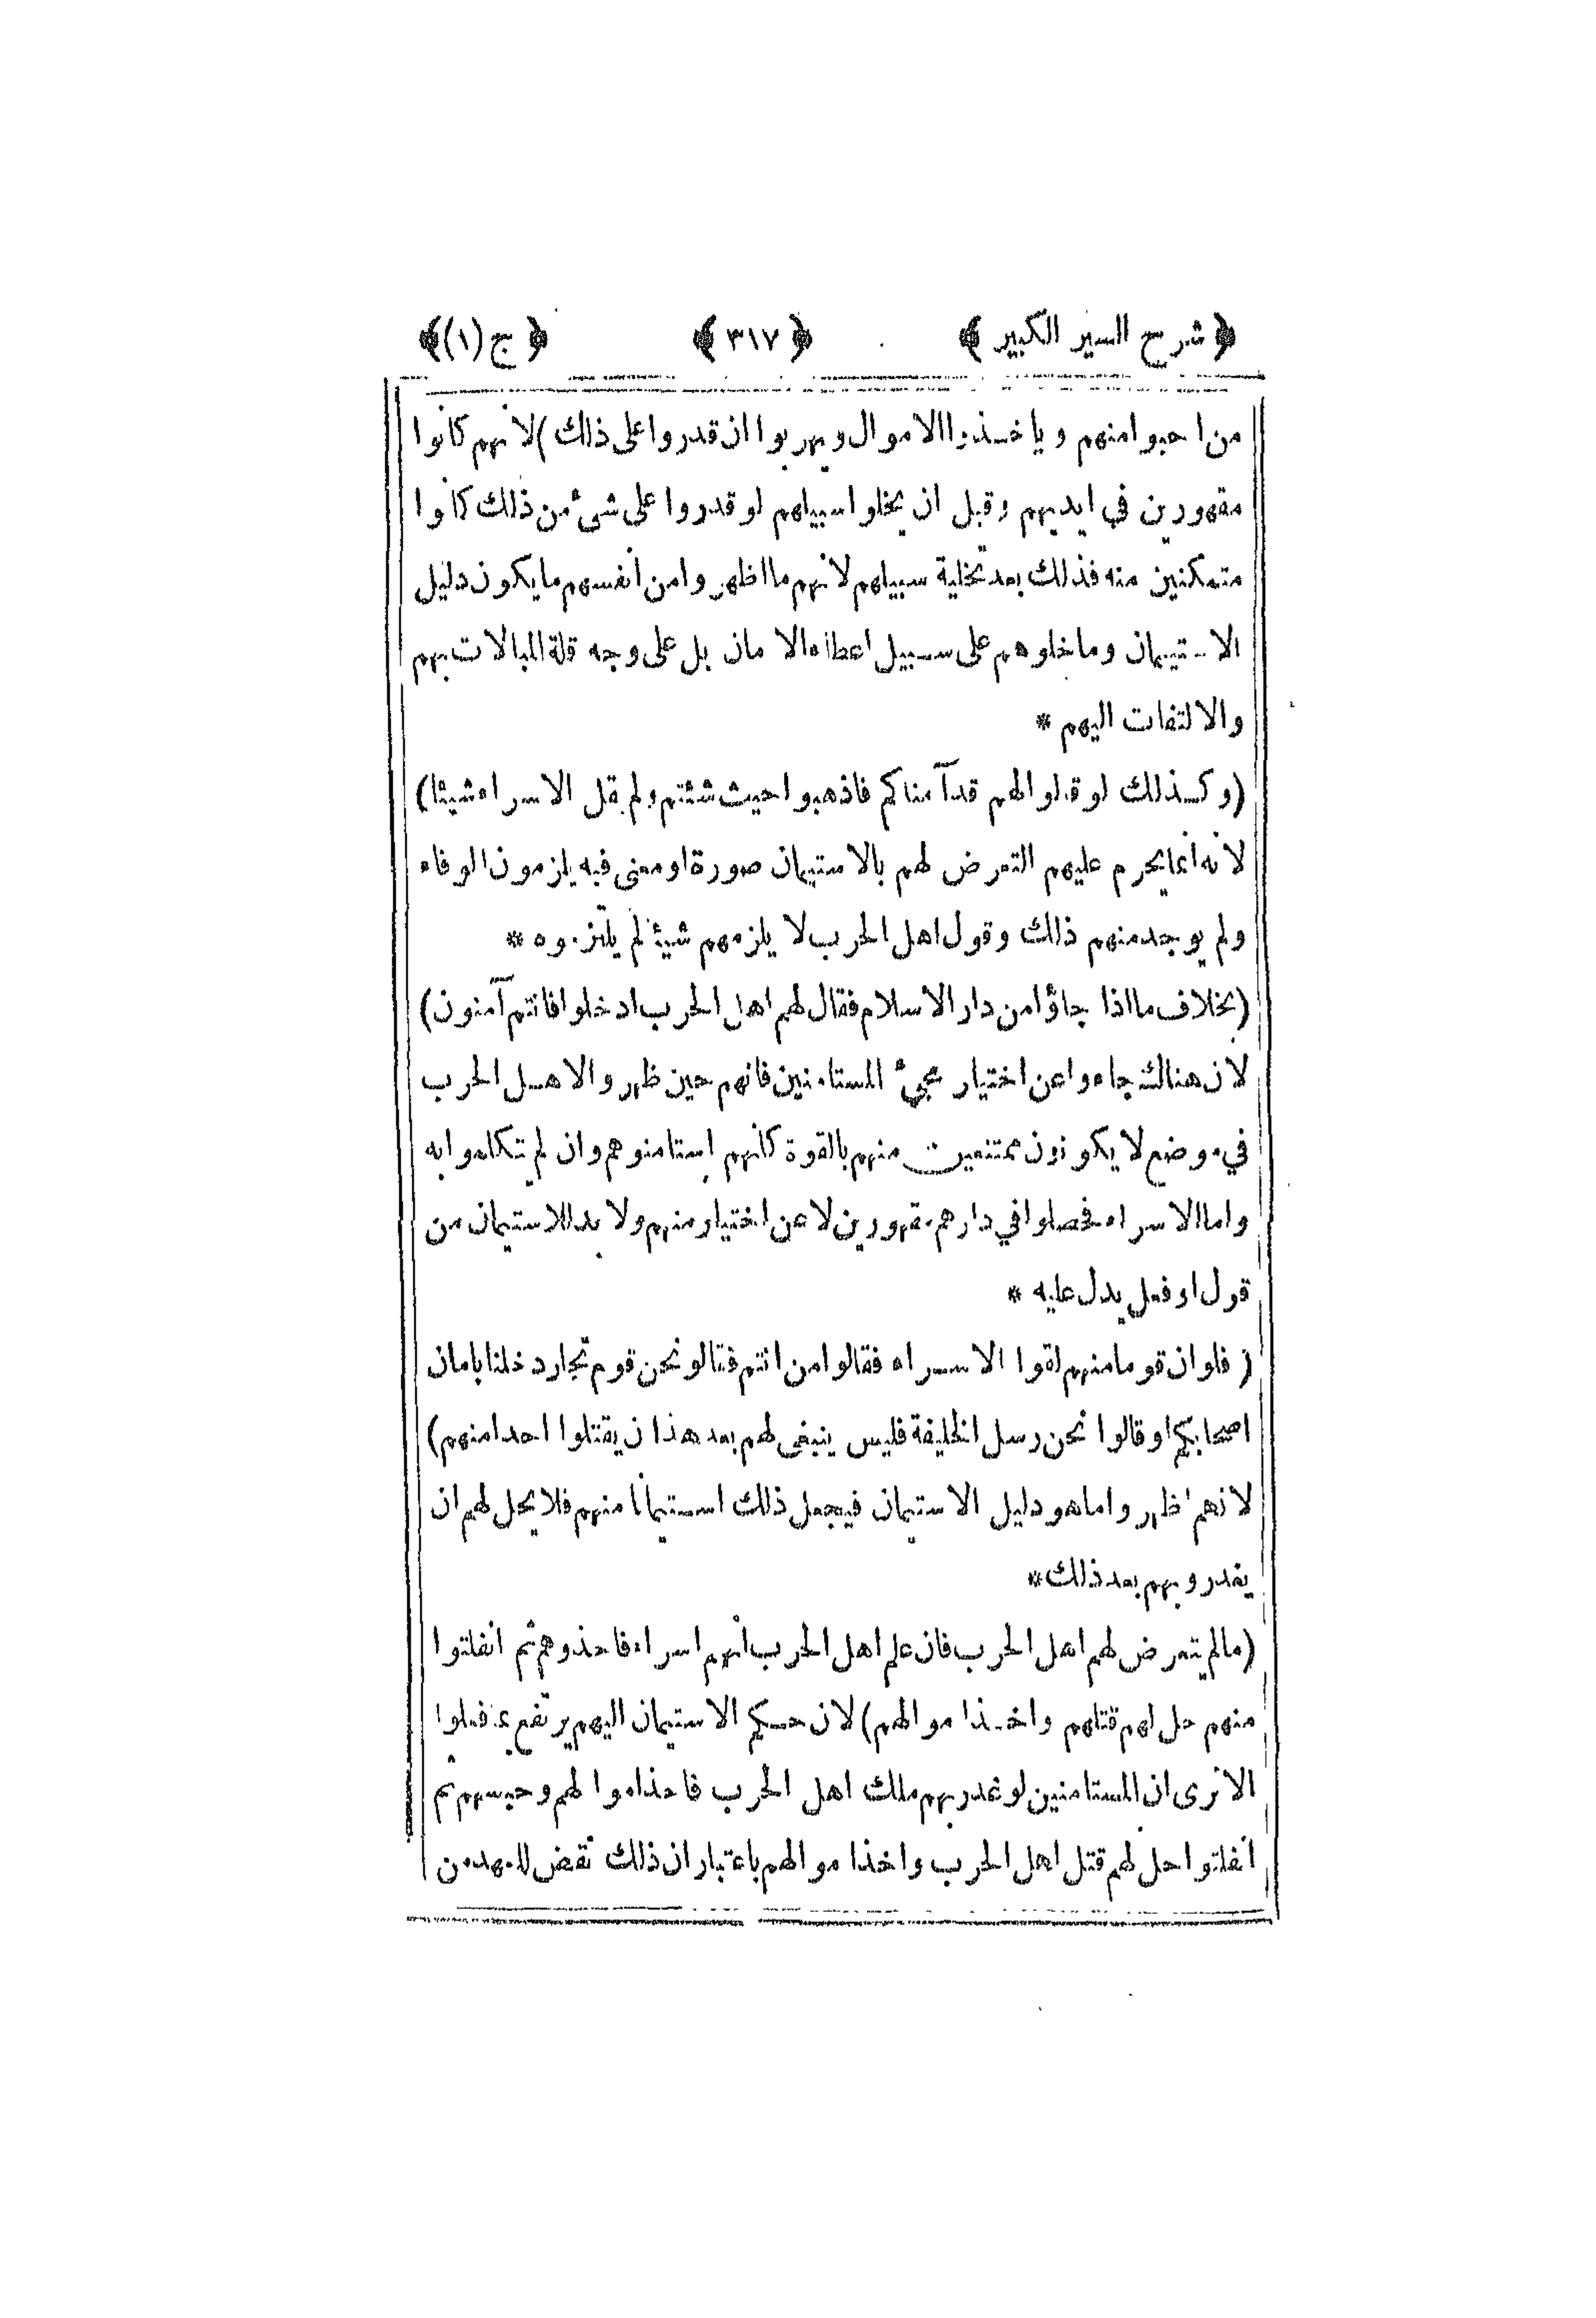 ﴿ شرح السير الكبير ﴾ ﴿ ٣١٧ ﴾ ﴿ ج (١) ﴾
من احبوا منهم وياخذوا الاموال ويهربوا ان قدروا على ذلك) لانهم كانوا
مقهورين في ايديهم وقبل ان يخلوا سبيلهم لو قدروا على شئ من ذلك كانوا
متمكنين منه فذلك بعد تخلية سبيلهم لانهم ما اظهروا من انفسهم ما يكون دليل
الاستيمان وما خلوهم على سبيل اعطاء الامان بل على وجه قلة المبالات بهم
والالتفات اليهم *
(وكذلك لو قالوا لهم قد آمناكم فاذهبوا حيث شئتم ولم يقل الاسراء شيئا)
لانه انما يحرم عليهم التعرض لهم بالاستيمان صورة او معنى فبه يلزمون الوفاء
ولم يوجد منهم ذلك وقول اهل الحرب لا يلزمهم شيئا لم يلتزموه *
(بخلاف ما اذا جاؤا من دار الاسلام فقال لهم اهل الحرب ادخلوا فانتم آمنون)
لان هنالك جاءوا عن اختيار مجئ المستامنين فانهم حين ظهروا لاهل الحرب
في موضع لا يكونون ممتنعين منهم بالقوة كانهم استامنوهم وان لم يتكلموا به
واما الاسراء فحصلوا في دارهم مقهورين لا عن اختيار منهم ولا بد للاستيمان من
قول او فعل يدل عليه *
( فلو ان قوما منهم لقوا الاسراء فقالوا من انتم فقالو نحن قوم تجار دخلنا بامان
اصحابكم او قالوا نحن رسل الخليفة فليس ينبغى لهم بعد هذا ن يقتلوا احدا منهم)
لانهم اظهروا ما هو دليل الاستيمان فيجعل ذلك استيمانا منهم فلا يحل لهم ان
يغدروا بهم بعد ذلك *
(ما لم يتعرض لهم اهل الحرب فان علم اهل الحرب انهم اسراء فاخذوهم ثم انفلتوا
منهم حل لهم قتلهم واخذ اموالهم) لان حكم الاستيمان اليهم يرتفع بما فعلوا
الا ترى ان المستامنين لو غدر بهم ملك اهل الحرب فاخذ اموالهم وحبسهم ثم
انفلتوا حل لهم قتل اهل الحرب واخذ اموالهم باعتبار ان ذلك نقض للعهد من